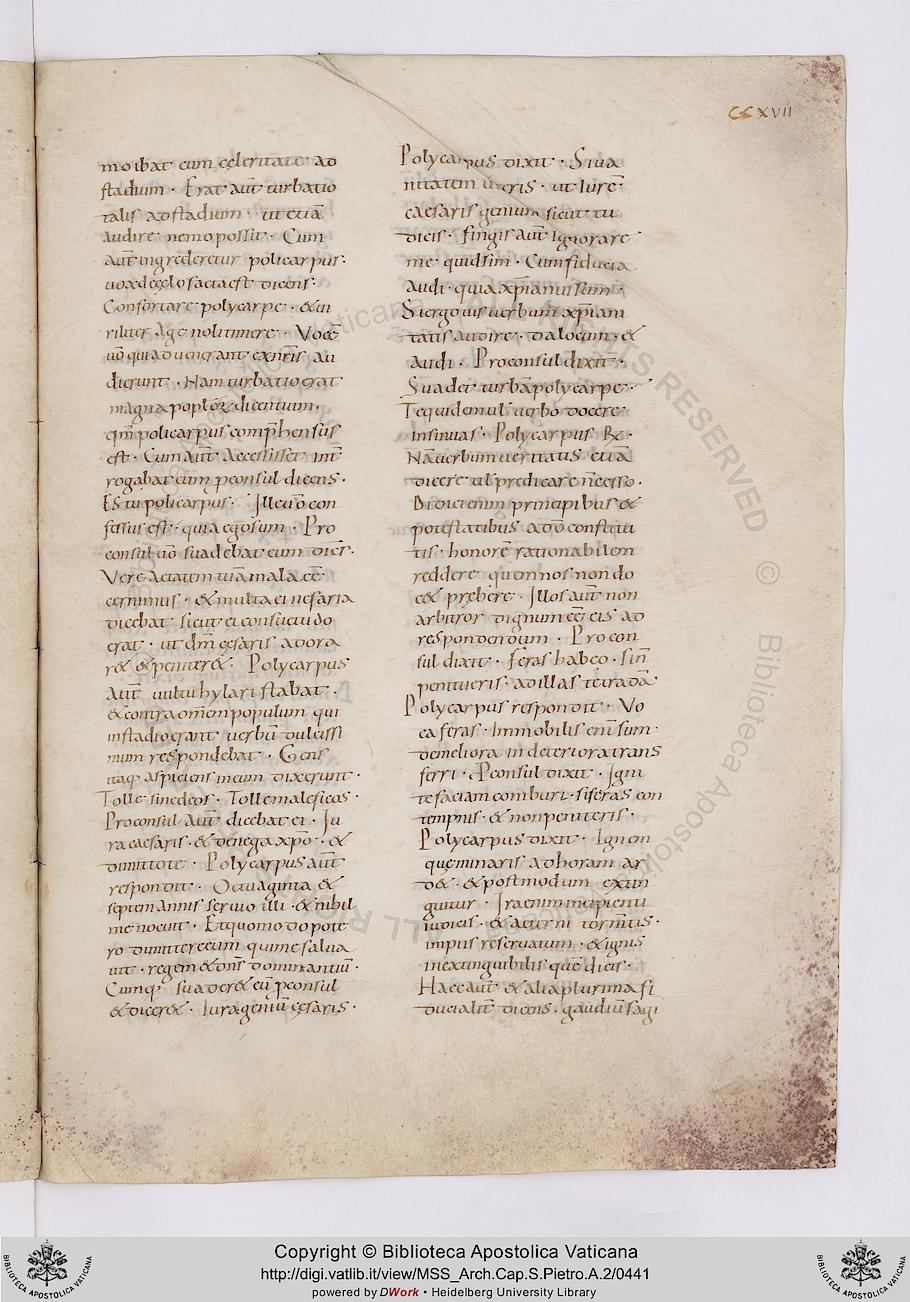 CCXVII
mo ibat cum celeritate ad
stadium · Erat aut̄ turbatio
talis ad stadium · ut etiā
audire nemo possit · Cum
aut̄ ingrederetur policarpus ·
uox de çelo facta est dicens ·
Confortare polycarpe · & ui
riliter age noli timere · Vocē
uō qui aduenerant ex nr̄is au
dierunt · Nam turbatio erat
magna poploꝝ dicentium ·
qm̄ policarpus comp̄hensus
est · Cum aut̄ accessisset int̄
rogabat eum ꝓconsul dicens ·
Es tu policarpus · Ille uō con
fessus est · quia ego sum · Pro
consul uō suadebat eum dicēs ·
Vere aetatem tuā mala eē
cernimus · & multa ei nefaria
dicebat sicut ei consuetudo
erat · ut dm̄ cęsaris adora
r& & penit&r& · Polycarpus
aut̄ uultu hylari stabat ·
& contra omēm populum qui
in stadio erant uerbū dulcissi
mum respondebat · Gens
itaq; aspiciens in eum dixerunt ·
Tolle sine deos · Tolle maleficos ·
Proconsul aut̄ dicebat ei · Iu
ra caesaris · & denega xp̄o · &
dimitto te · Polycarpus aut̄
respondit · Octuaginta &
septem annis seruio illi · & nihil
me nocuit · Et quomodo pote
ro dimittere eum qui me salua
uit · regem & dn̄s dominantiū ·
Cumq; suader& eū ꝓconsul
& dicer& · Iura geniū cęsaris ·
Polycarpus dixit · Si ua
nitatem uęris · ut iurē
caesaris genium sicut tu
dicis · fingis aut̄ ignorare
me quid sim · Cum fiducia
audi · quia xp̄ianus sum ·
Si ergo uis uerbum xp̄iani
tatis audire · da locum · &
audi · Proconsul dixit ·
Suade turbā polycarpe ·
Te quidem ul̄ uerbo docere
insinuas · Polycarpus R& ·
Nā uerbum ueritatis etiā
dicere ul̄ predicare necesse ·
Didici enim principibus &
potestatibus a dō constitu
tis · honorē rationabilem
reddere quem nos non do
c& prębere · Illos aut̄ non
arbitror dignum eē eis ad
respondendum · Procon
sul dixit · feras habeo · sin̄
penitueris · ad illas te tradā ·
Polycarpus respondit · Vo
ca feras · Immobilis eni sum ·
de meliora in deteriora trans
ferri · ꝓconsul dixit · Igni
te faciam comburi · si feras con
tempnis · & non peniteris ·
Polycarpus dixit · Ignem
quę minaris ad horam ar
d& · & postmodum extin
guitur · Irae nim incipienti
iudicis · & aeterni torm̄tis ·
impiis reseruatum · & ignis
inextinguibilis quē dicis ·
Haec aut̄ & alia plurima fi
ducialit̄ dicens · gaudiū sagi
Copyright © Biblioteca Apostolica Vaticana
http://digi.vatlib.it/view/MSS_Arch.Cap.S.Pietro.A.2/0441
powered by DWork • Heidelberg University Library